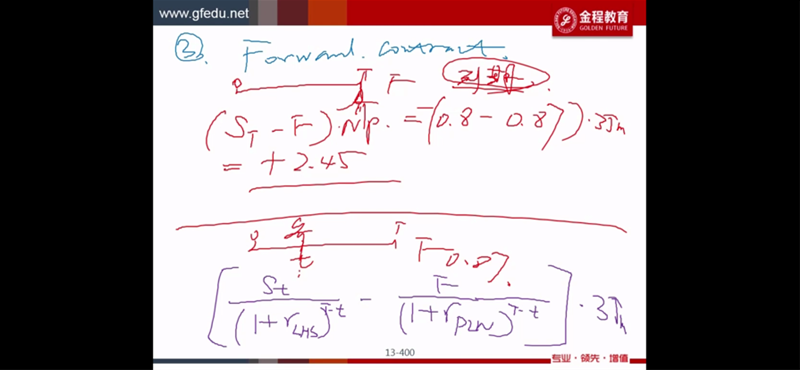 www.gfedu.net
金程教育
GOLDEN FUTURE
③. Forward contract.
0 T F 到期.
(S_T - F) · NP. = -(0.8 - 0.87) · 35m
= + 2.45
0 t T F 0.87.
[ St / (1 + r_LHS)^(T-t) - F / (1 + r_PLN)^(T-t) ] · 35m
13-400
专业·领先·增值